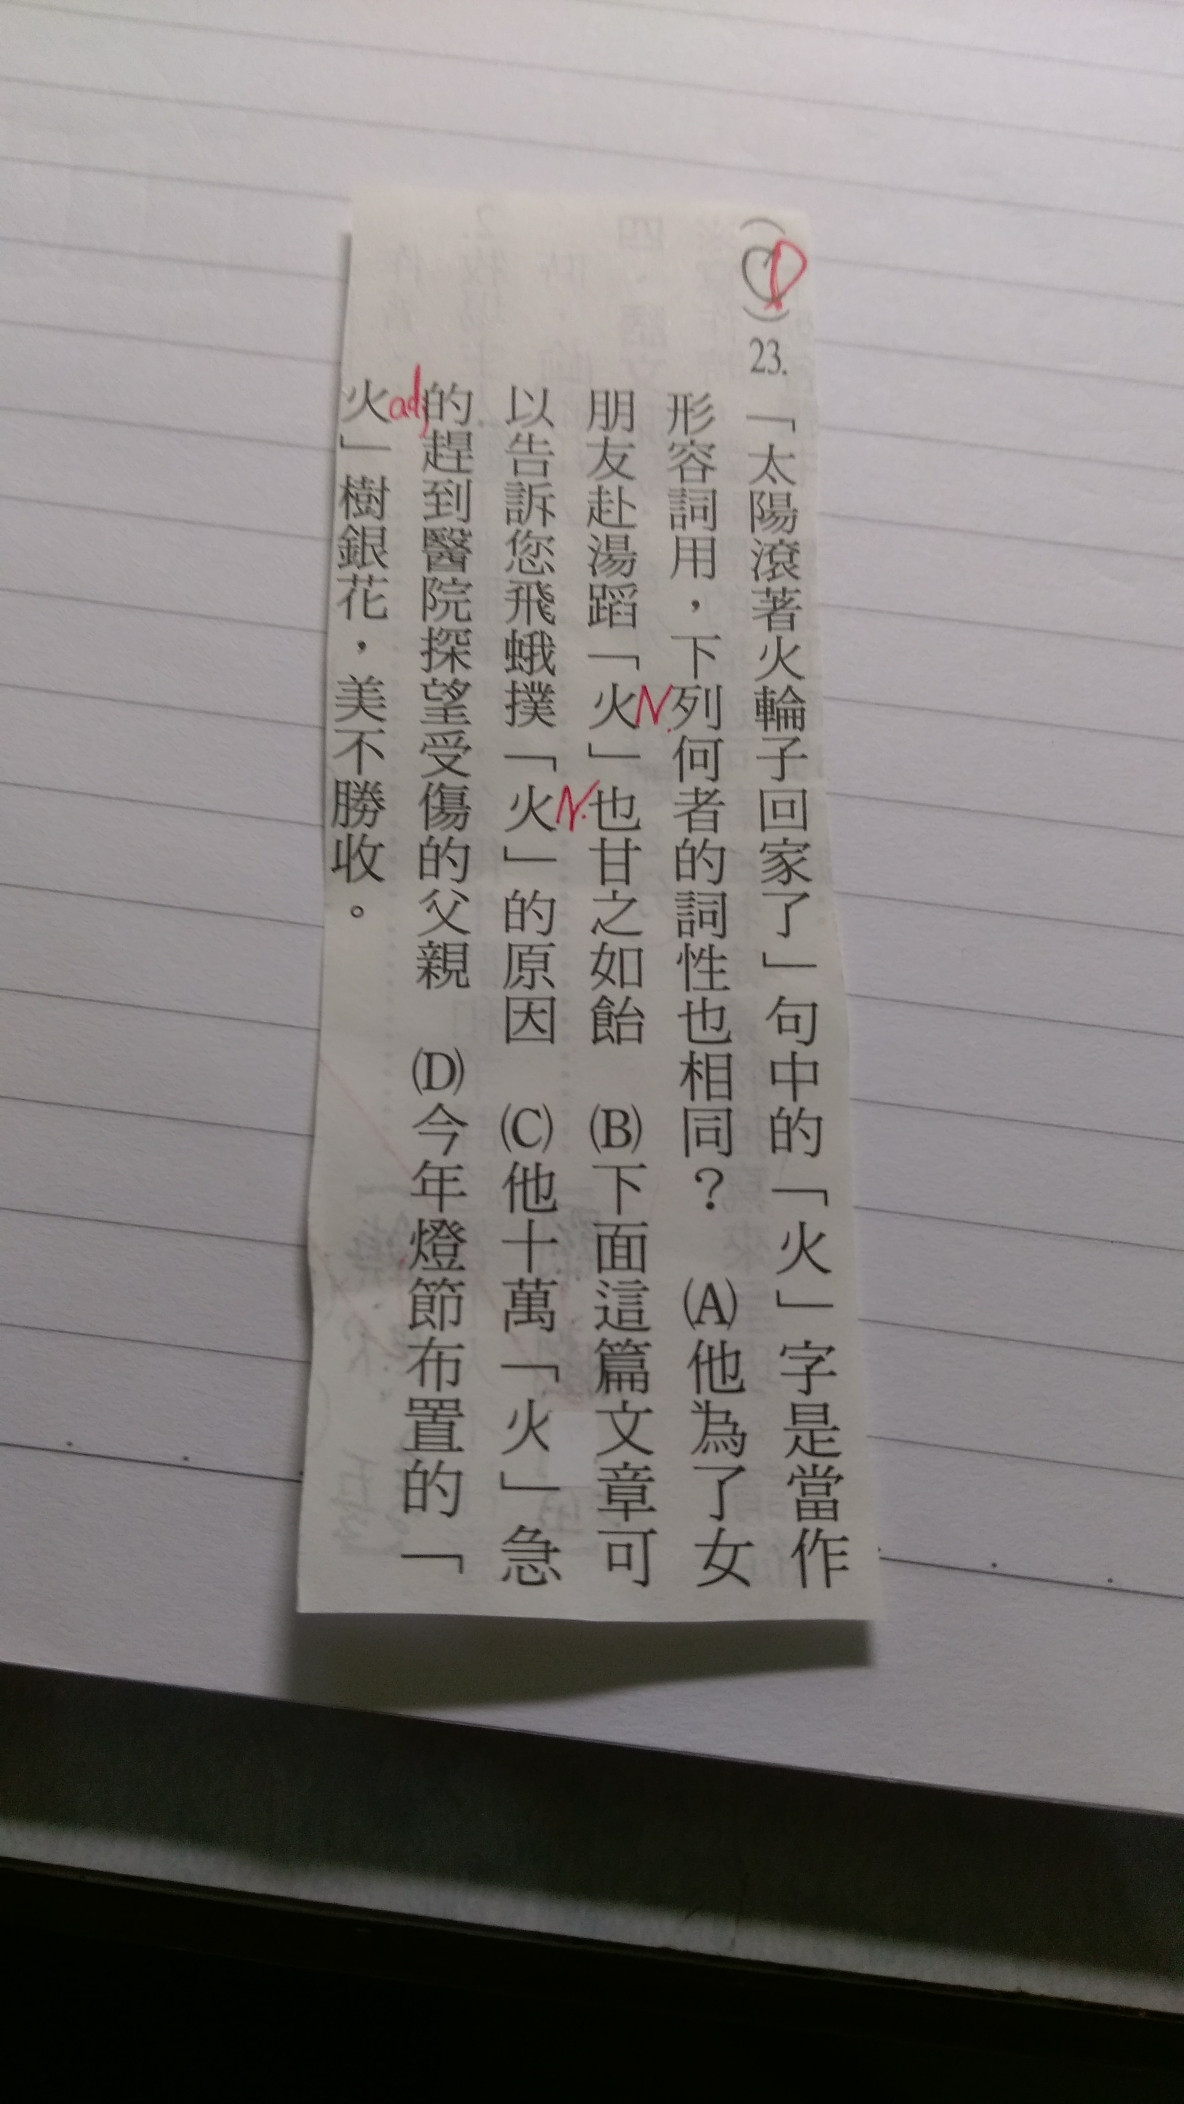 (D) 23.「太陽滾著火輪子回家了」句中的「火」字是當作
形容詞用，下列何者的詞性也相同？ (A)他為了女
朋友赴湯蹈「火」也甘之如飴 (B)下面這篇文章可
以告訴您飛蛾撲「火」的原因 (C)他十萬「火」急
的趕到醫院探望受傷的父親 (D)今年燈節布置的「
火」樹銀花，美不勝收。
N.
N.
adj